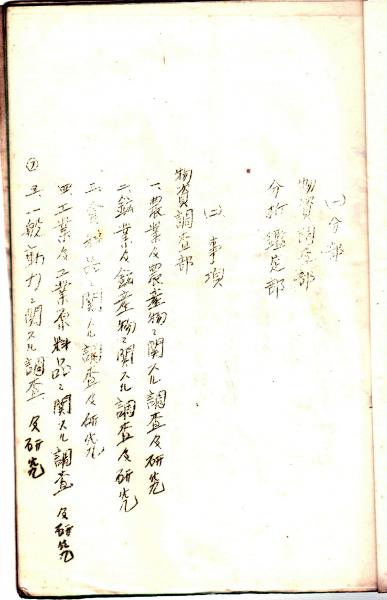 (一) 分部
物資調査部
分析鑑定部
(二) 事項
物資調査部
一、農業及農産物ニ関スル調査及研究
二、鉱業及鉱産物ニ関スル調査及研究
三、食料品ニ関スル調査及研究
四、工業及工業原料品ニ関スル調査及研究
五、一般動力ニ関スル調査及研究